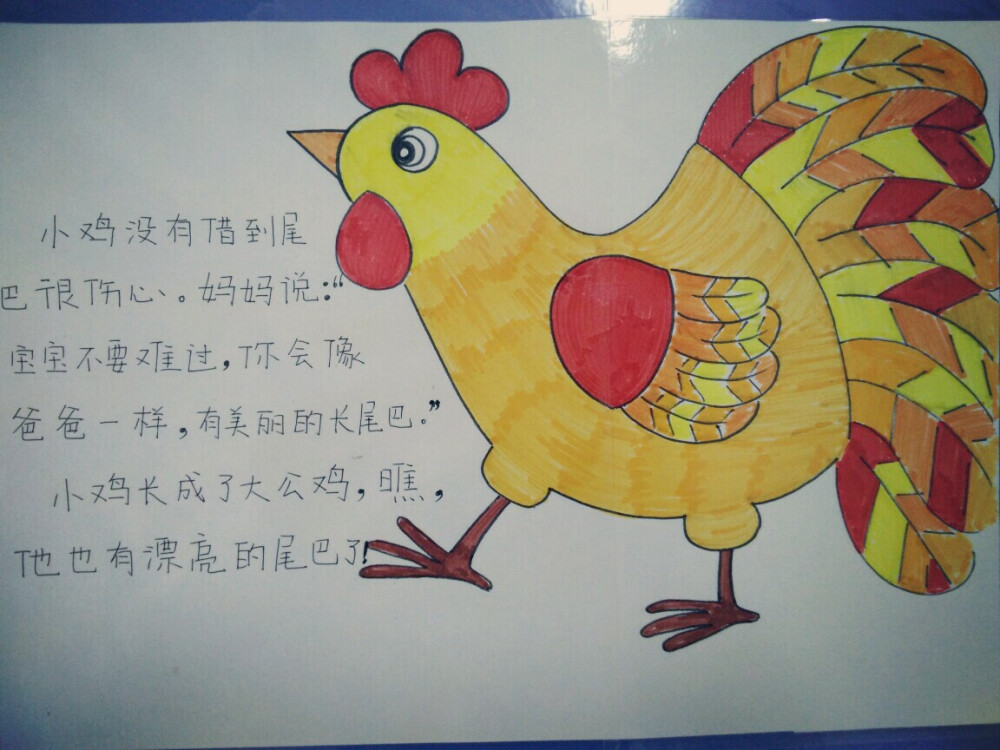 小鸡没有借到尾
巴很伤心。妈妈说:“
宝宝不要难过,你会像
爸爸一样,有美丽的长尾巴.”
小鸡长成了大公鸡,瞧,
他也有漂亮的尾巴了!